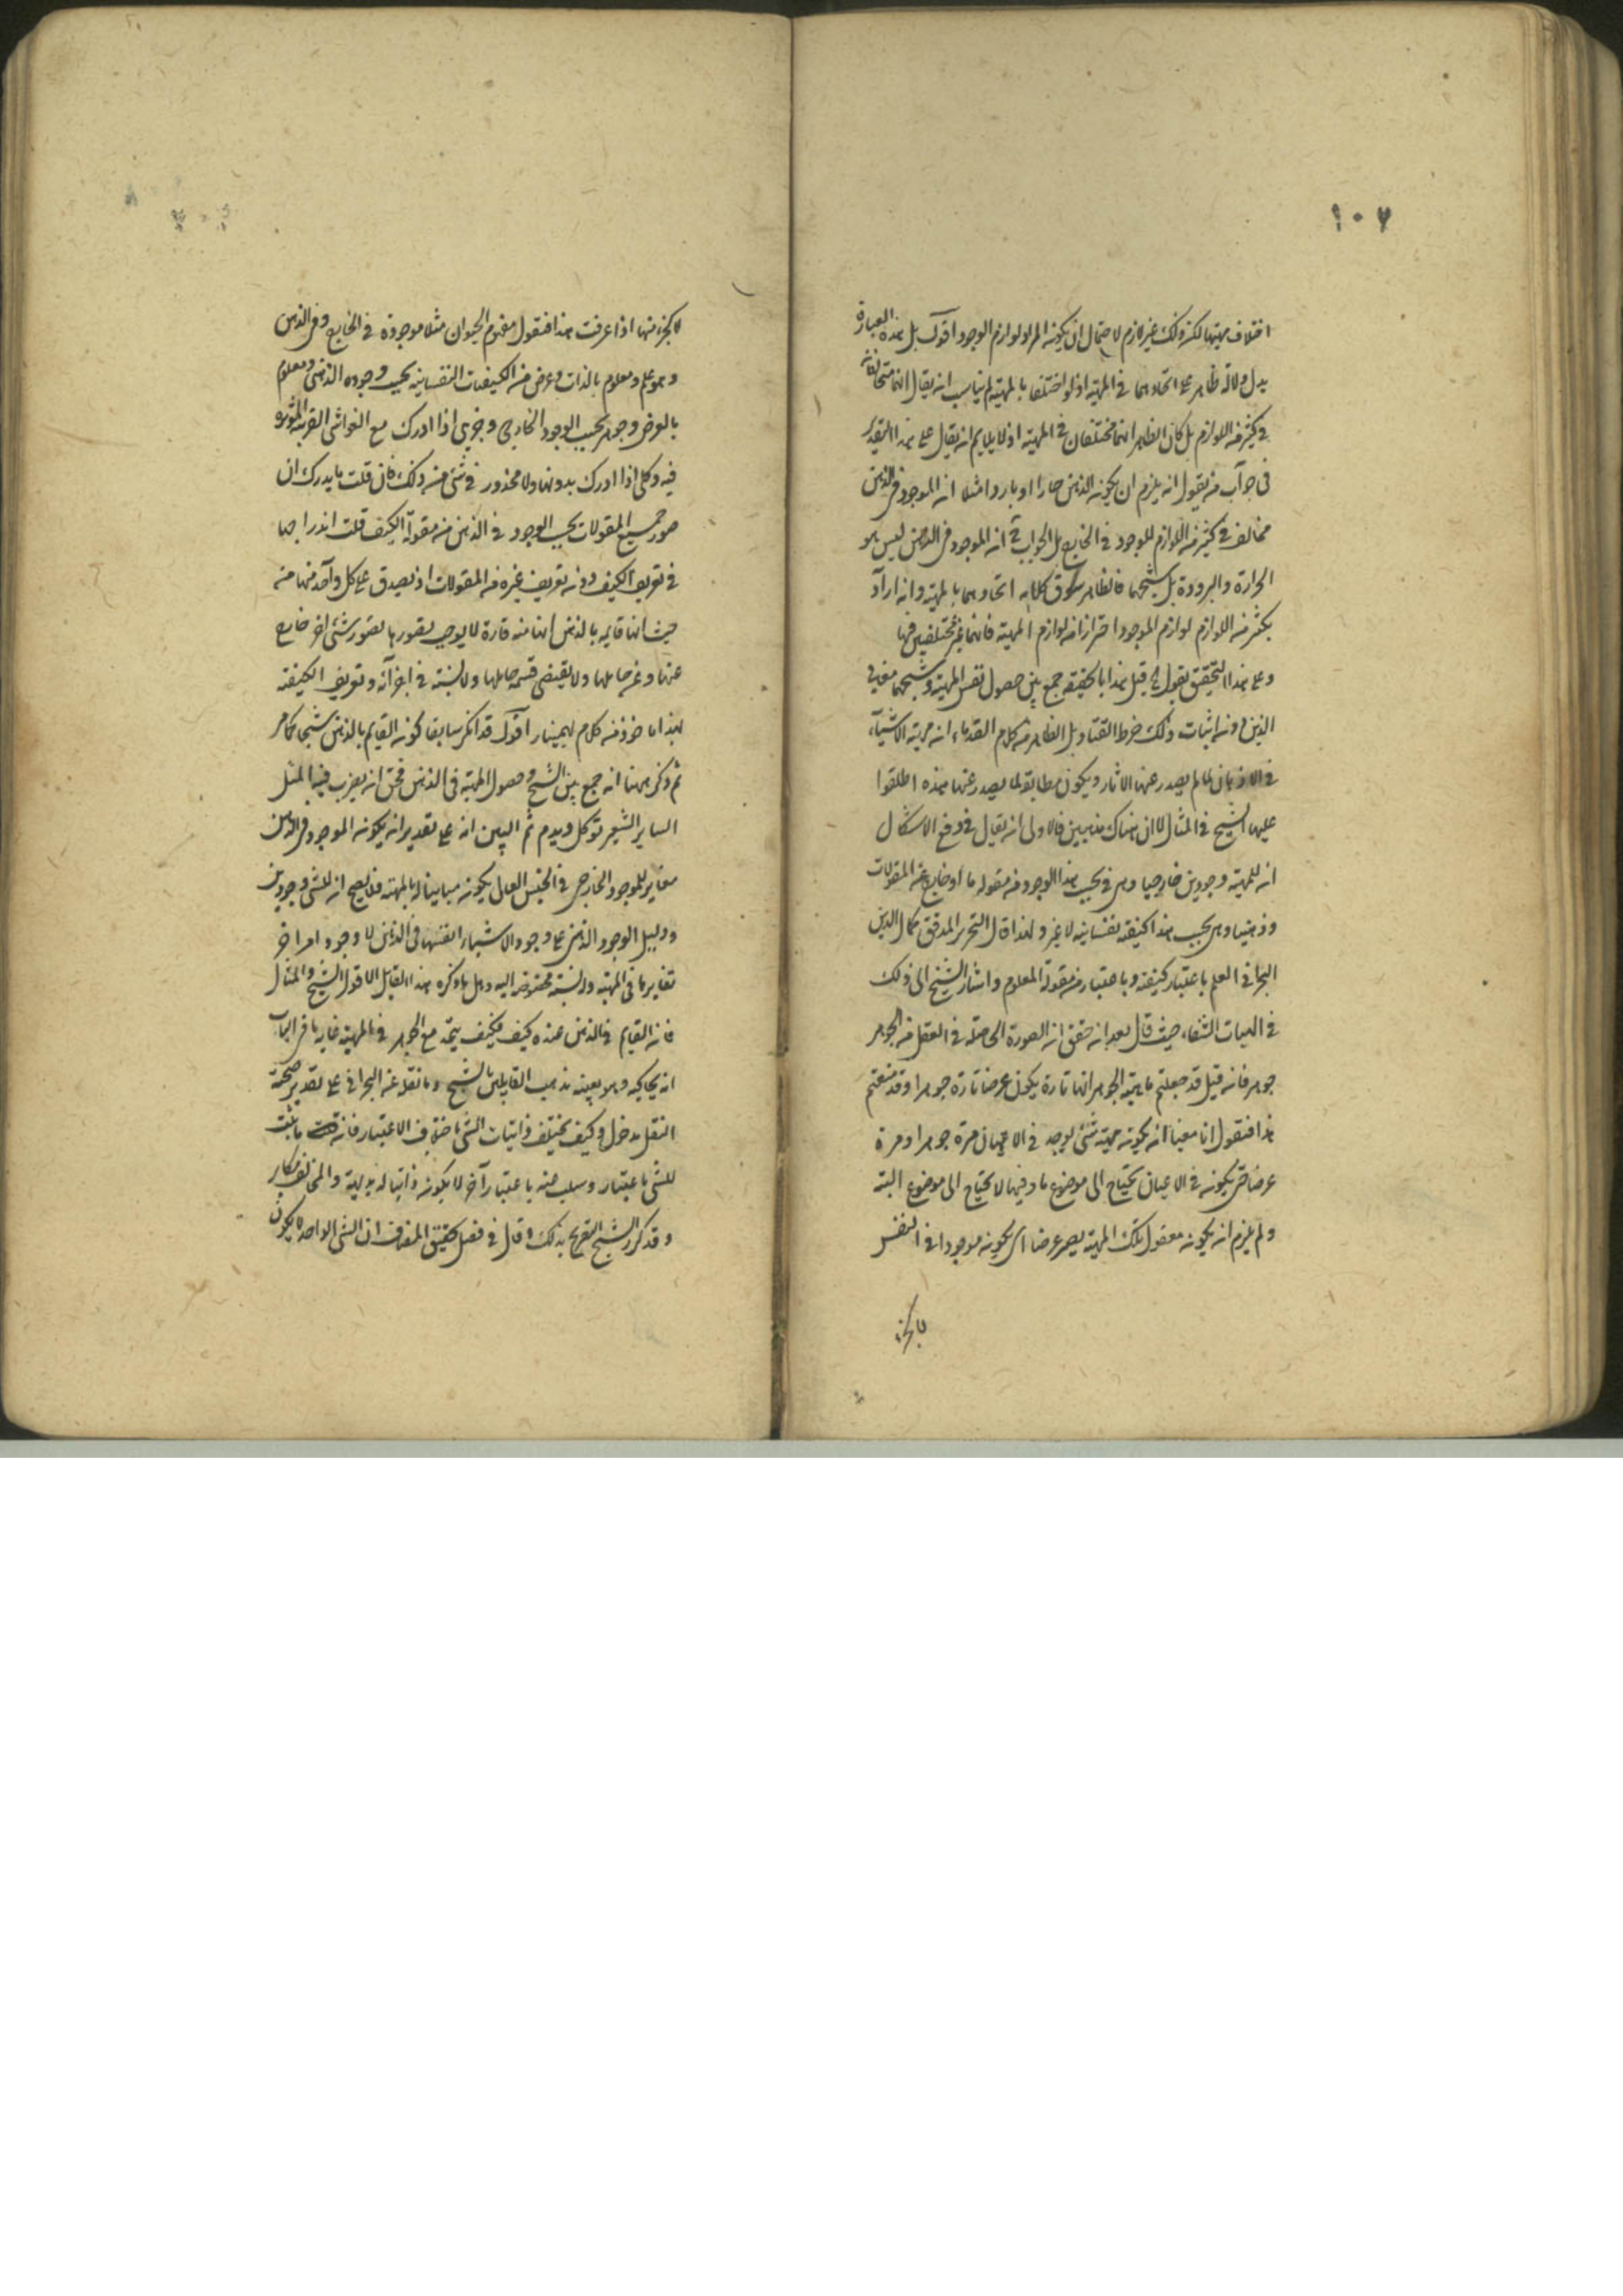 ١٠٧
اختلاف مهيتها لكنه ذلك غير لازم لاحتمال ان يكونه المراد لوازم الوجود اقول بل هذه العبارة
يدل دلالة ظاهرة على اتحادهما في المهية اذ لو اختلفا بالمهية لم يناسب انه يقال انها متخالفة
في كثير من اللوازم بل كان الظاهر انهما مختلفان في المهية اذ لا يلايم انه يقال على هذا التقدير
في جواب من يقول انه يلزم ان يكونه الذهن حارا او باردا مثلا انه الموجود في الذهن
مخالف في كثير من اللوازم للموجود في الخارج بل الجواب ح انه الموجود في الذهن ليس هو
الحرارة والبرودة بل شبحهما فالظاهر سوق كلامه اتحادهما بالمهية وانه اراد
بكثير من اللوازم لوازم الموجود احترازا من لوازم المهية فانهما غير مختلفين فيها
وعلى هذا التحقيق نقول قيل هذا بالحقيقة جمع بين حصول نفس المهية وشبحهما معا في
الذهن دونه اثبات ذلك خرط القتاد بل الظاهر من كلام القدماء انه مهية الاشياء
في الاذهان لما لم يصدر عنها الاثار ويكون مطابقة لما يصدر عنها هذه اطلقوا
عليها الشبح في المثال لا ان هناك مذهبين فالاولى انه يقال في دفع الاشكال
انه للمهية وجودين خارجيا وهي بحسب هذا الوجود من مقولة ما او خارج عنه المقولات
وذهنيا وهي بحسب هذا كيفية نفسانية لا غير ولهذا قال النحرير المدقق كمال الدين
البحراني العلم باعتبار كيفية وباعتبار من مقولة المعلوم واشار الشيخ الى ذلك
في الهيات الشفاء حيث قال بعد انه حقق انه الصورة الحاصلة في العقل من الجوهر
جوهر فانه قيل قد جعلتم ماهية الجوهر انها تارة يكون عرضا تارة جوهرا وقد منعتم
هذا فنقول انا منعنا انه يكونه مهية شئ يوجد في الاعيان مرة جوهرا ومرة
عرضا حتى يكونه في الاعيان يحتاج الى موضوع ما وفيها لا يحتاج الى موضوع البتة
ولم يلزم انه يكونه معقول تلك المهية يصير عرضا اي يكونه موجودا في النفس
لا كجزء
لا كجزء منها اذا عرفت هذا فنقول مفهوم الحيوان مثلا موجودة في الخارج وفي الذهن
وهو علم ومعلوم بالذات وعرض من الكيفيات النفسانية بحسب وجوده الذهني ومعلوم
بالعرض وجوهر بحسب الوجود الخارجي وجزئي اذا ادرك مع الغواشي الغريبة المؤثرة
فيه وكلي اذا ادرك بدونها ولا محذور في شئ من ذلك فان قلت ما يدرك ان
صور جميع المقولات بحسب الوجود في الذهن من مقولة الكيف قلت اندراجها
في تعريف الكيف دونه تعريف غيره من المقولات اذ يصدق على كل واحد منها من
حيث انها قايمة بالذهن انها منه قارة لا يوجب تصورها تصور شئ اخر خارج
عنها وغير حاملها ولا يقتضي قسمة حاملها ولا نسبة في اجزائه وتعريف الكيفية
لهذا ماخوذ من كلام بهمنيار اقول قد انكر سابقا كونه القايم بالذهن شبحا كما مر
ثم ذكر ههنا انه جمع بين الشبح وحصول المهية في الذهن فحق انه يضرب فيه المثل
الساير الشعير تؤكل ويذم ثم البين انه على تقدير انه يكونه الموجود في الذهن
مغاير للموجود الخارجي في الجنس العالي يكونه مباينا له بالمهية فلا يصح انه للشئ وجودين
ودليل الوجود الذهني على وجود الاشياء انفسها في الذهن لا وجود امر اخر
تغايرها في المهية ولنسبة مخصوصة اليه وهل ما ذكره هذا القايل الا قول الشبح والمثال
فانه القايم بالذهن عنده كيف فكيف يتحد مع الجوهر في المهية غاية ما في الباب
انه يحاكيه وهو بعينه مذهب القايلين بالشبح وما نقله عن البحراني على تقدير صحة
النقل مدخول وكيف يختلف ذاتيات الشئ باختلاف الاعتبار فانه ما يثبت
للشئ باعتبار وسلب عنه باعتبار آخر لا يكونه ذاتيا له بديهة والمخالف مكابر
وقد كرر الشيخ التصريح بذلك وقال في فصل تحقيق المضاف ان الشئ الواحد لا يكون